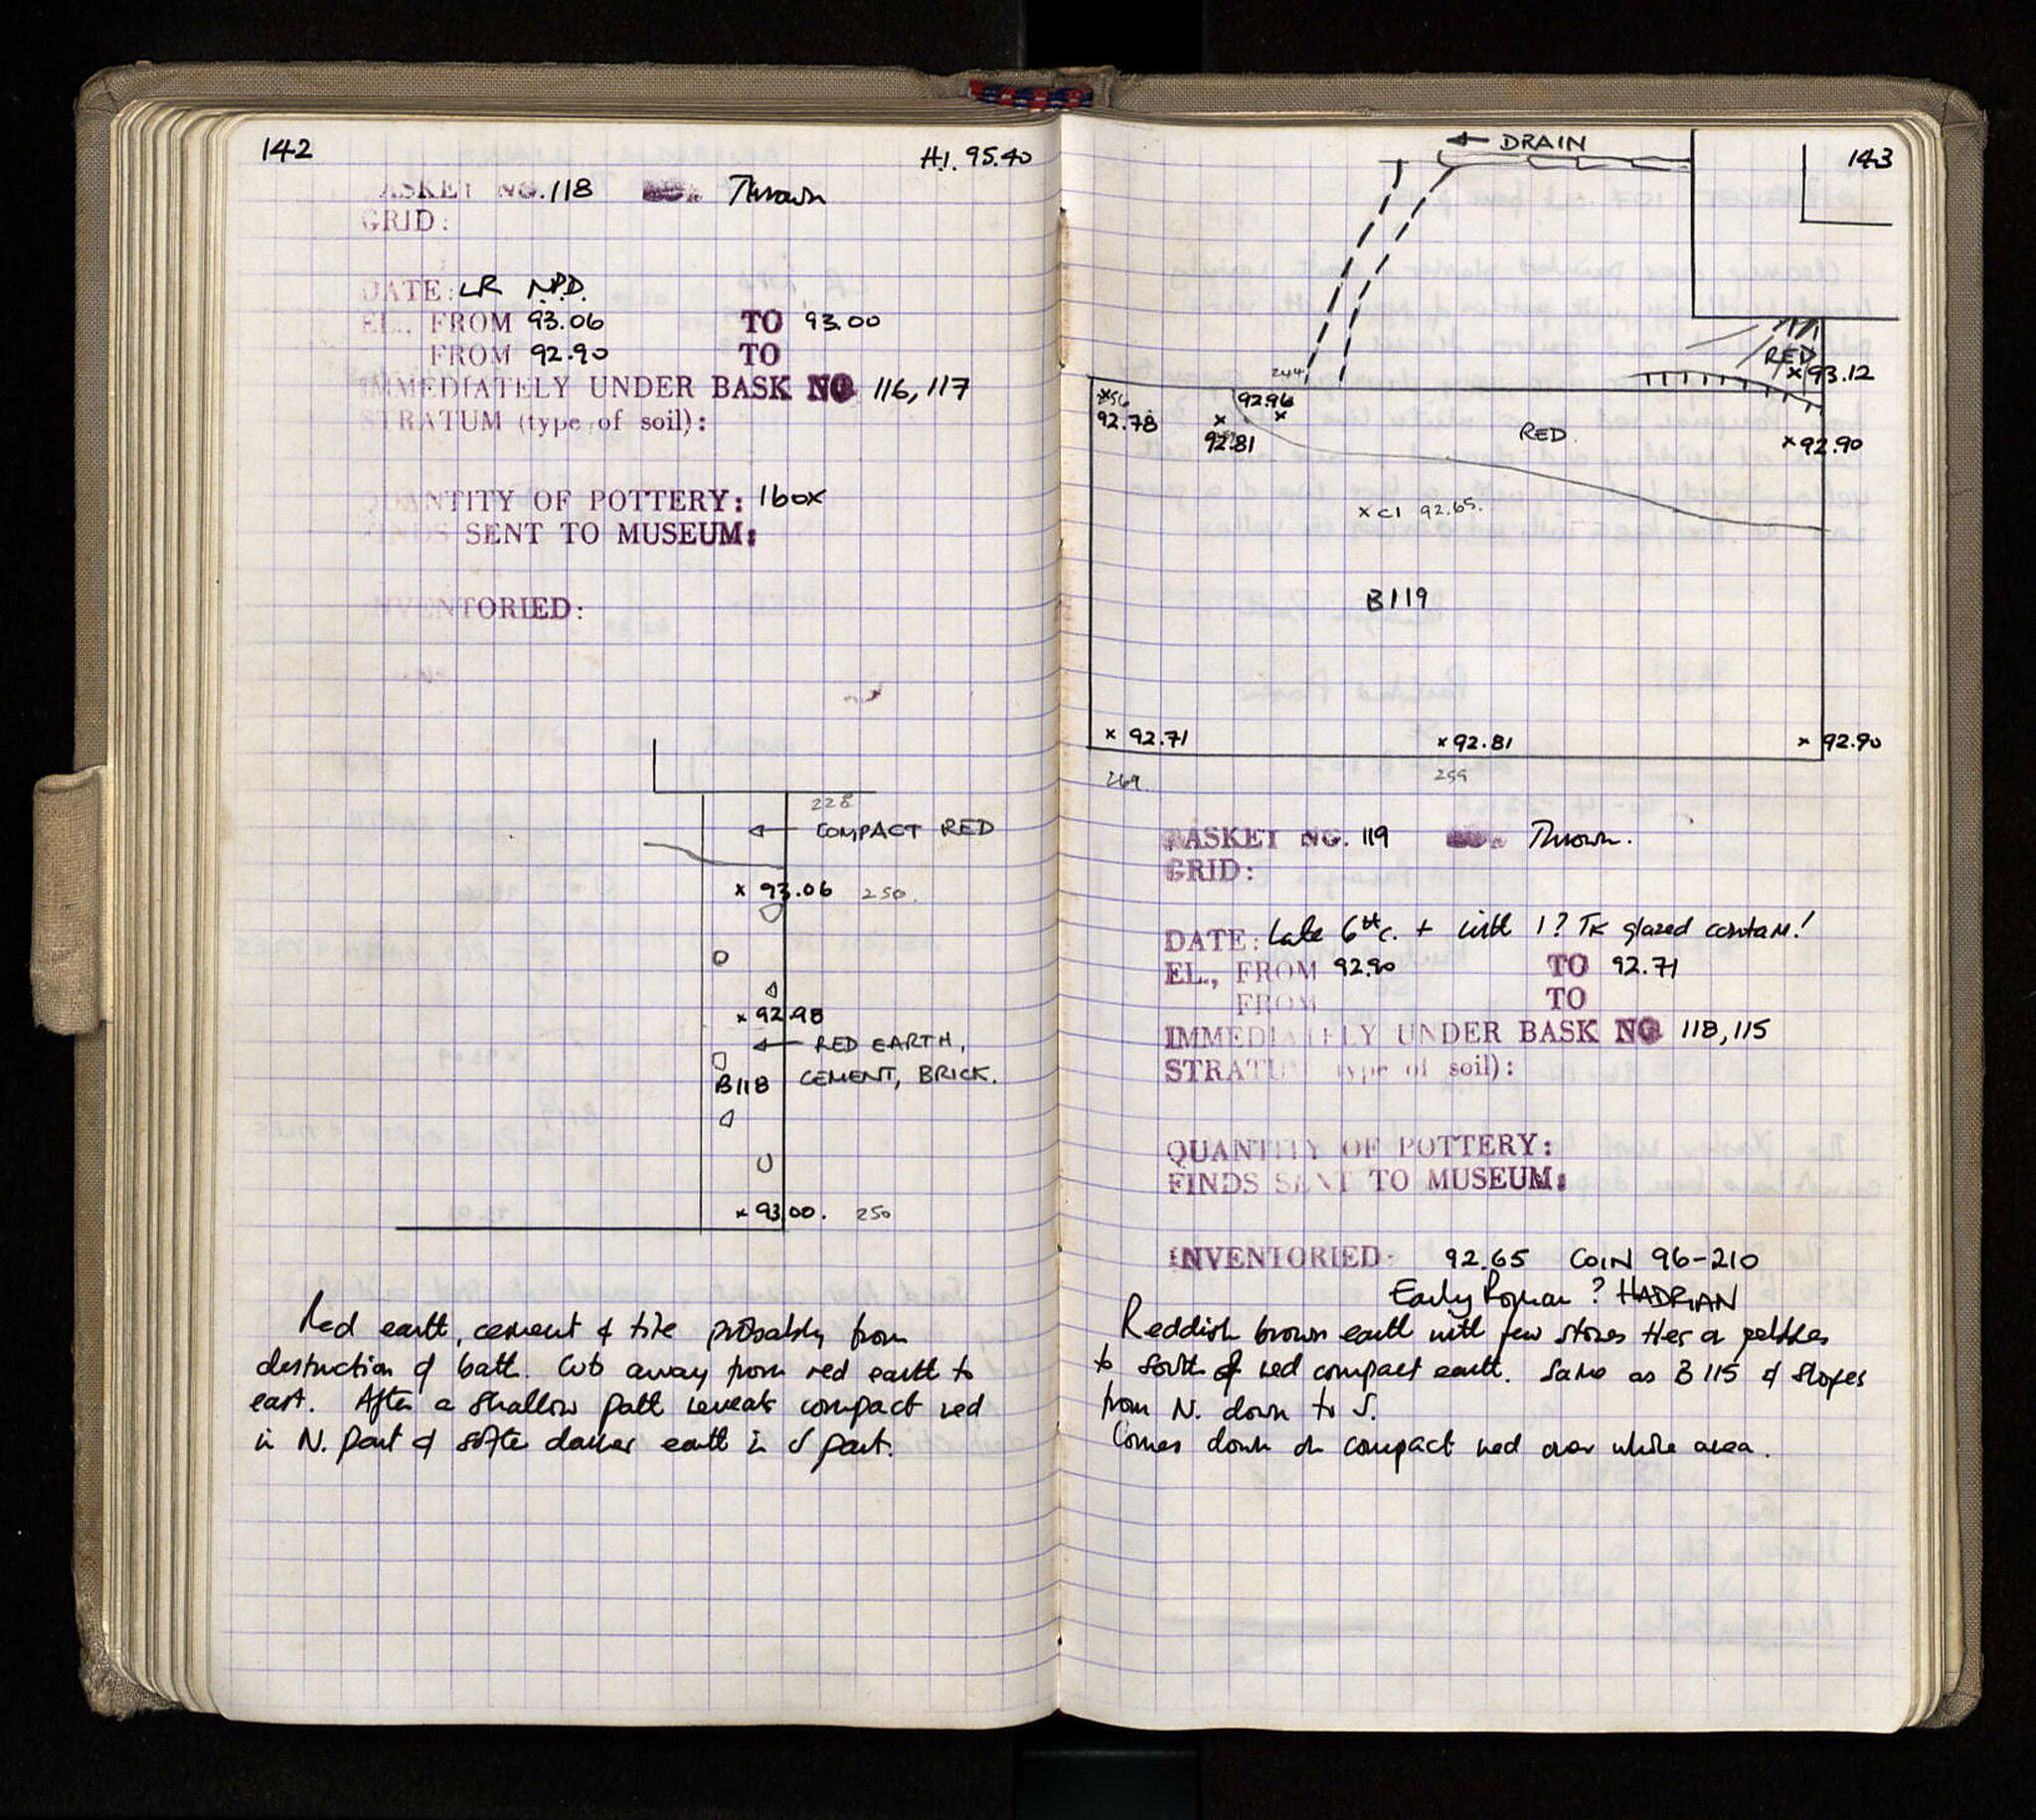 142
H.I. 95.40
ASKET NO. 118 Thrown
GRID:
DATE: LR N.P.D.
EL., FROM 93.06 TO 93.00
FROM 92.90 TO
IMMEDIATELY UNDER BASK NO 116, 117
STRATUM (type of soil):
QUANTITY OF POTTERY: 1 box
FINDS SENT TO MUSEUM:
INVENTORIED:
228
COMPACT RED
x 93.06 250.
x 92.98
RED EARTH,
B118 CEMENT, BRICK.
x 93.00. 250
Red earth, cement & tile probably from
destruction of bath. Cut away from red earth to
east. After a shallow patt reveals compact red
in N. part & softer darker earth in S part.
DRAIN
143
RED
x 93.12
244
256
92.78
92.96
x
x
92.81
RED
x 92.90
x C1 92.65.
B119
x 92.71
x 92.81
x 92.90
269.
259
BASKET NO. 119 Thrown.
GRID:
DATE: Late 6th c. + with 1? TK glazed contam!
EL., FROM 92.90 TO 92.71
FROM TO
IMMEDIATELY UNDER BASK NO 118, 115
STRATU type of soil):
QUANTITY OF POTTERY:
FINDS SENT TO MUSEUM:
INVENTORIED: 92.65 COIN 96-210
Early Roman ? HADRIAN
Reddish brown earth with few stones tiles or pebbles
to south of red compact earth. Same as B115 & slopes
from N. down to S.
Comes down on compact red over whole area.